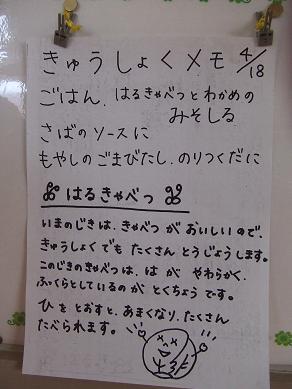 きゅうしょくメモ 4/18
ごはん、はるきゃべつとわかめの
みそしる
さばのソースに
もやしのごまびたし、のりつくだに
はるきゃべつ
いまのじきは、きゃべつ が おいしいので、
きゅうしょくでも たくさん とうじょうします。
このじきのきゃべつは、は が やわらかく、
ふっくらとしているのが とくちょう です。
ひ を とおすと、あまくなり、たくさん
たべられます。